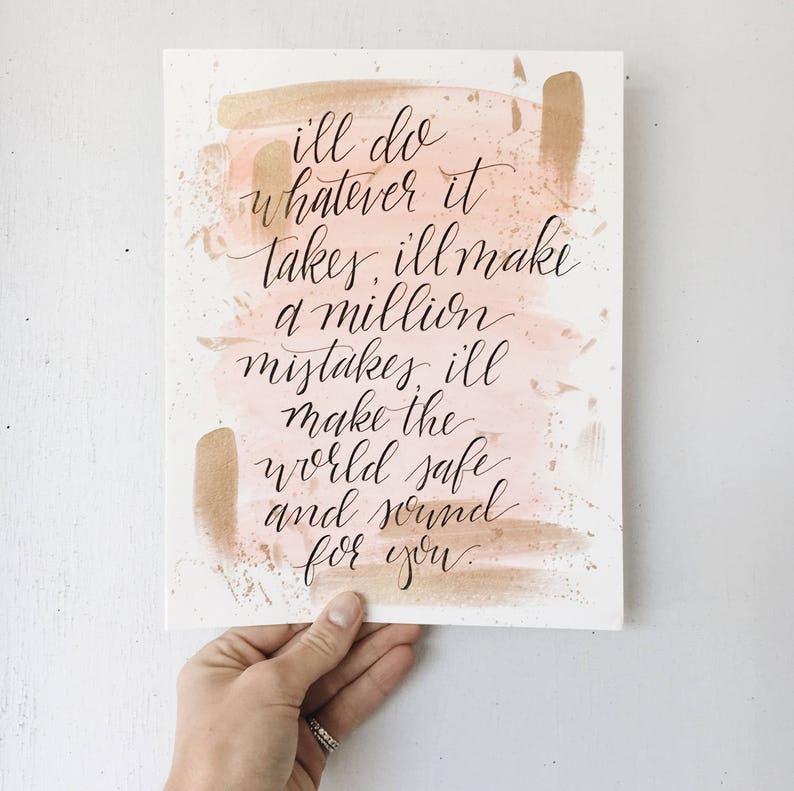 i'll do
whatever it
takes, i'll make
a million
mistakes, i'll
make the
world safe
and sound
for you.